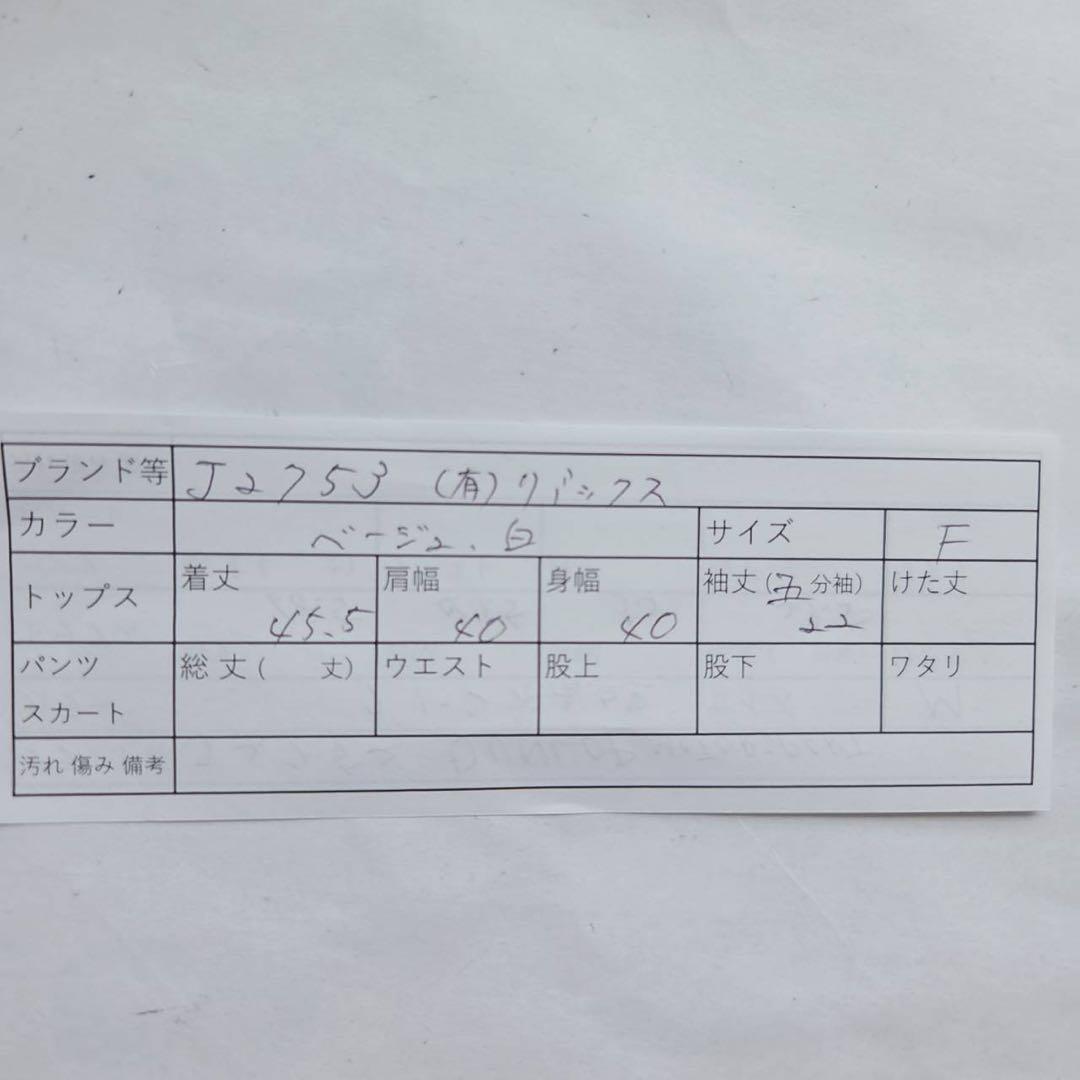 ブランド等 J2753 (有)リバックス
カラー ベージュ、白 サイズ F
トップス 着丈 45.5 肩幅 40 身幅 40 袖丈(五分袖) 22 けた丈
パンツ スカート 総丈( 丈) ウエスト 股上 股下 ワタリ
汚れ 傷み 備考